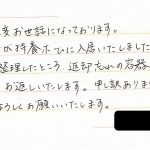 変お世話になっております。
が特養ホームに入居いたしました
整理したところ、返却忘れの容器
お返しいたします。申し訳ありま
ろしくお願いいたします。